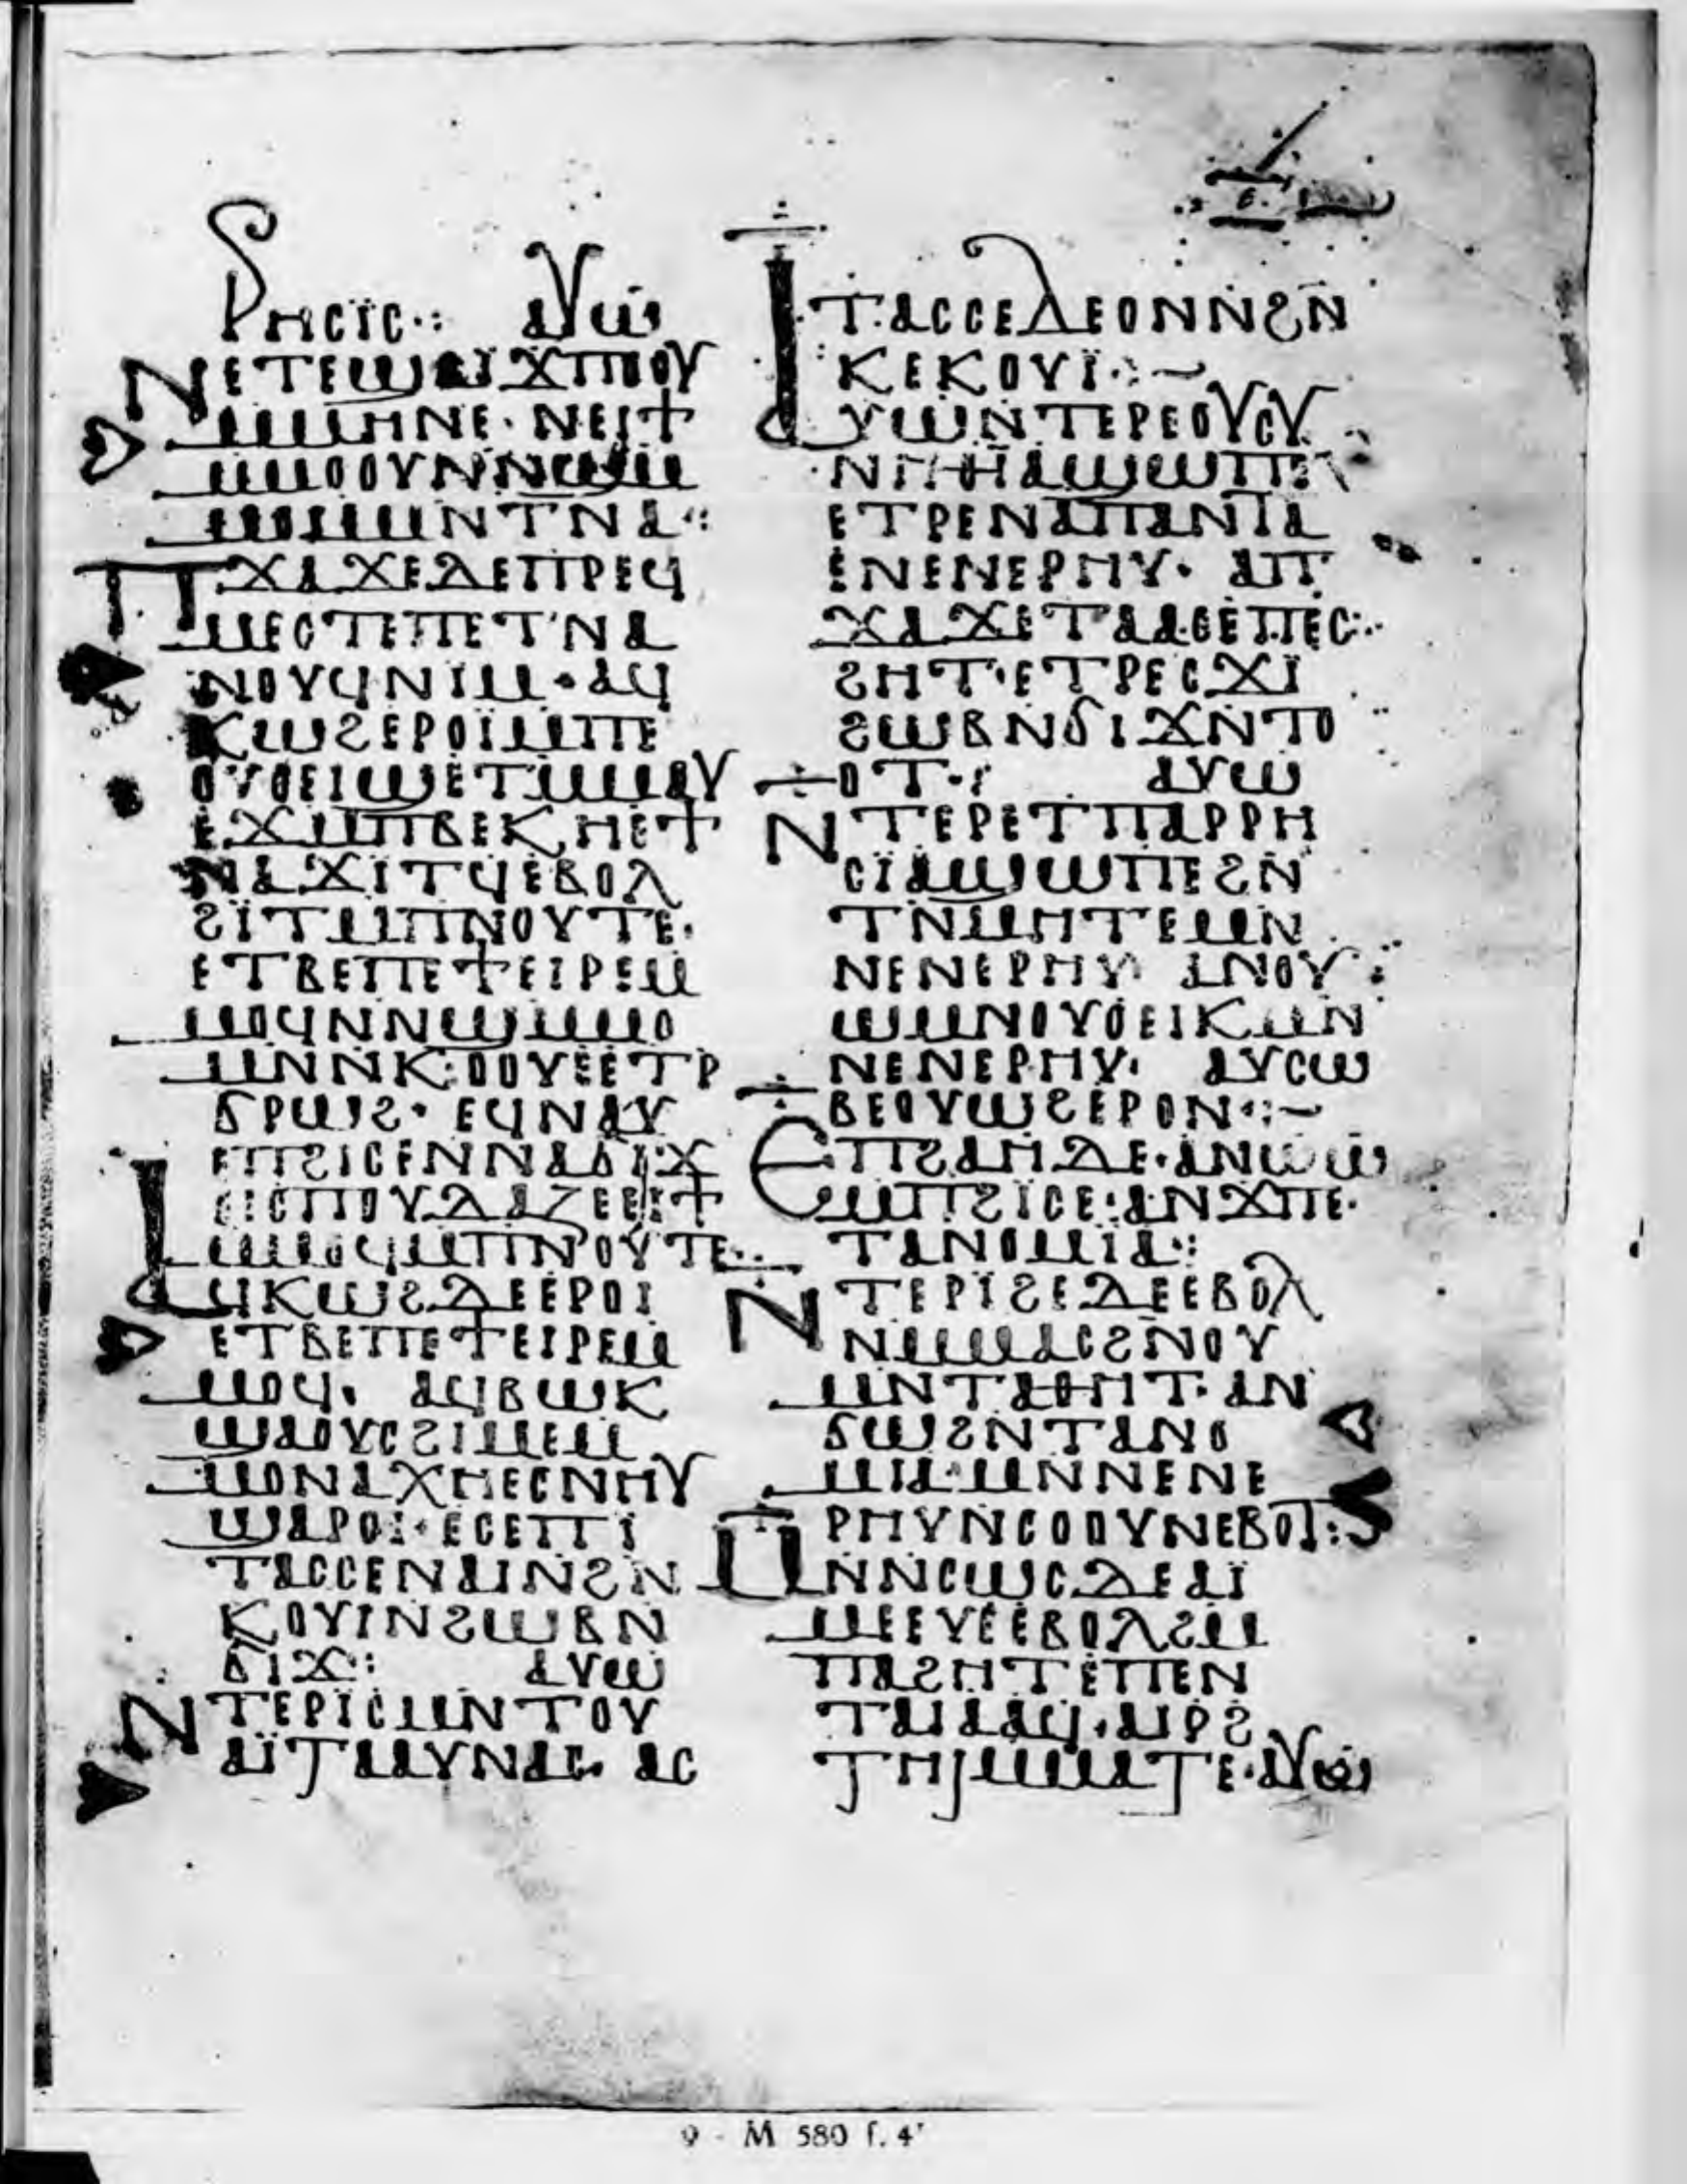 ⲣⲏⲥⲓⲥ ⲁⲩⲱ
ⲛⲉⲧⲉϣⲁⲓϫⲡⲟⲟⲩ
ⲙⲙⲏⲛⲉ· ⲛⲉⲓϯ
ⲙⲙⲟⲟⲩⲛⲛϣⲙ
ⲙⲟⲙⲙⲛⲧⲛⲁ
ⲡϫⲁϫⲉⲇⲉⲡⲣⲉϥ
ⲙⲉⲥⲧⲉⲡⲉⲧⲛⲁ
ⲛⲟⲩϥⲛⲓⲙ· ⲁϥ
ⲕⲱϩⲉⲣⲟⲓⲙⲡⲉ
ⲟⲩⲟⲉⲓϣⲉⲧⲙⲙⲁⲩ
ⲉϫⲙⲡⲃⲉⲕⲏⲉϯ
ⲛⲁϫⲓⲧϥⲉⲃⲟⲗ
ϩⲓⲧⲙⲡⲛⲟⲩⲧⲉ·
ⲉⲧⲃⲉⲡⲉϯⲉⲓⲣⲉⲙ
ⲙⲟϥⲛⲛϣⲙⲙⲟ
ⲙⲛⲛⲕⲟⲟⲩⲉⲉⲧⲣ
ϭⲣⲱϩ· ⲉϥⲛⲁⲩ
ⲉⲡϩⲓⲥⲉⲛⲛⲁϭⲓϫ
ⲉⲓⲥⲡⲟⲩⲇⲁⲍⲉⲉⲓϯ
ⲙⲙⲟϥⲙⲡⲛⲟⲩⲧⲉ
ⲁϥⲕⲱϩⲇⲉⲉⲣⲟⲓ
ⲉⲧⲃⲉⲡⲉϯⲉⲓⲣⲉⲙ
ⲙⲟϥ· ⲁϥⲃⲱⲕ
ϣⲁⲟⲩⲥϩⲓⲙⲉⲙ
ⲙⲟⲛⲁⲭⲏⲉⲥⲛⲏⲩ
ϣⲁⲣⲟⲓ· ⲉⲥⲉⲡⲓ
ⲧⲁⲥⲥⲉⲛⲁⲓⲛϩⲛ
ⲕⲟⲩⲓⲛϩⲱⲃⲛ
ϭⲓϫ ⲁⲩⲱ
ⲛⲧⲉⲣⲓⲥⲙⲛⲧⲟⲩ
ⲁⲓⲧⲁⲁⲩⲛⲁⲥ· ⲁⲥ
ⲉ
ⲓⲧⲁⲥⲥⲉⲇⲉⲟⲛⲛϩⲛ
ⲕⲉⲕⲟⲩⲓ
ⲁⲩⲱⲛⲧⲉⲣⲉⲟⲩⲥⲩ
ⲉⲧⲣⲉⲛⲁⲡⲁⲛⲧⲁ
ⲉⲛⲉⲛⲉⲣⲏⲩ· ⲁⲡ
ϫⲁϫⲉⲧⲁⲁⲥⲉⲡⲉⲥ
ϩⲏⲧ·ⲉⲧⲣⲉⲥϫⲓ
ϩⲱⲃⲛϭⲓϫⲛⲧⲟ
ⲟⲧ· ⲁⲩⲱ
ⲛⲧⲉⲣⲉⲧⲡⲁⲣⲣⲏ
ⲥⲓⲁϣⲱⲡⲉϩⲛ
ⲧⲛⲙⲏⲧⲉⲙⲛ
ⲛⲉⲛⲉⲣⲏⲩ ⲁⲛⲟⲩ
ⲱⲙⲛⲟⲩⲟⲉⲓⲕⲙⲛ
ⲛⲉⲛⲉⲣⲏⲩ· ⲁⲩⲥⲱ
ⲃⲉⲟⲩⲱϩⲉⲣⲟⲛ
ⲉⲡϩⲁⲏⲇⲉ·ⲁⲛⲱⲱ
ⲙⲡϩⲓⲥⲉ·ⲁⲛϫⲡⲉ·
ⲧⲁⲛⲟⲙⲓⲁ
ⲛⲧⲉⲣⲓϩⲉⲇⲉⲉⲃⲟⲗ
ⲛⲙⲙⲁⲥϩⲛⲟⲩ
ⲙⲛⲧⲁⲑⲏⲧ·ⲁⲛ
ϭⲱϩⲛⲧⲁⲛⲟ
ⲙⲓⲁ·ⲙⲛⲛⲉⲛⲉ
ⲣⲏⲩⲛⲥⲟⲟⲩⲛⲉⲃⲟⲧ
ⲙⲛⲛⲥⲱⲥⲇⲉⲁⲓ
ⲙⲉⲉⲩⲉⲉⲃⲟⲗϩⲙ
ⲡⲁϩⲏⲧⲉⲡⲉⲛ
ⲧⲁⲓⲁⲁϥ·ⲁⲓⲣϩ
ⲧⲏⲓⲙⲙⲁⲧⲉ·ⲁⲩⲱ
9 - M 580 f. 4ʳ